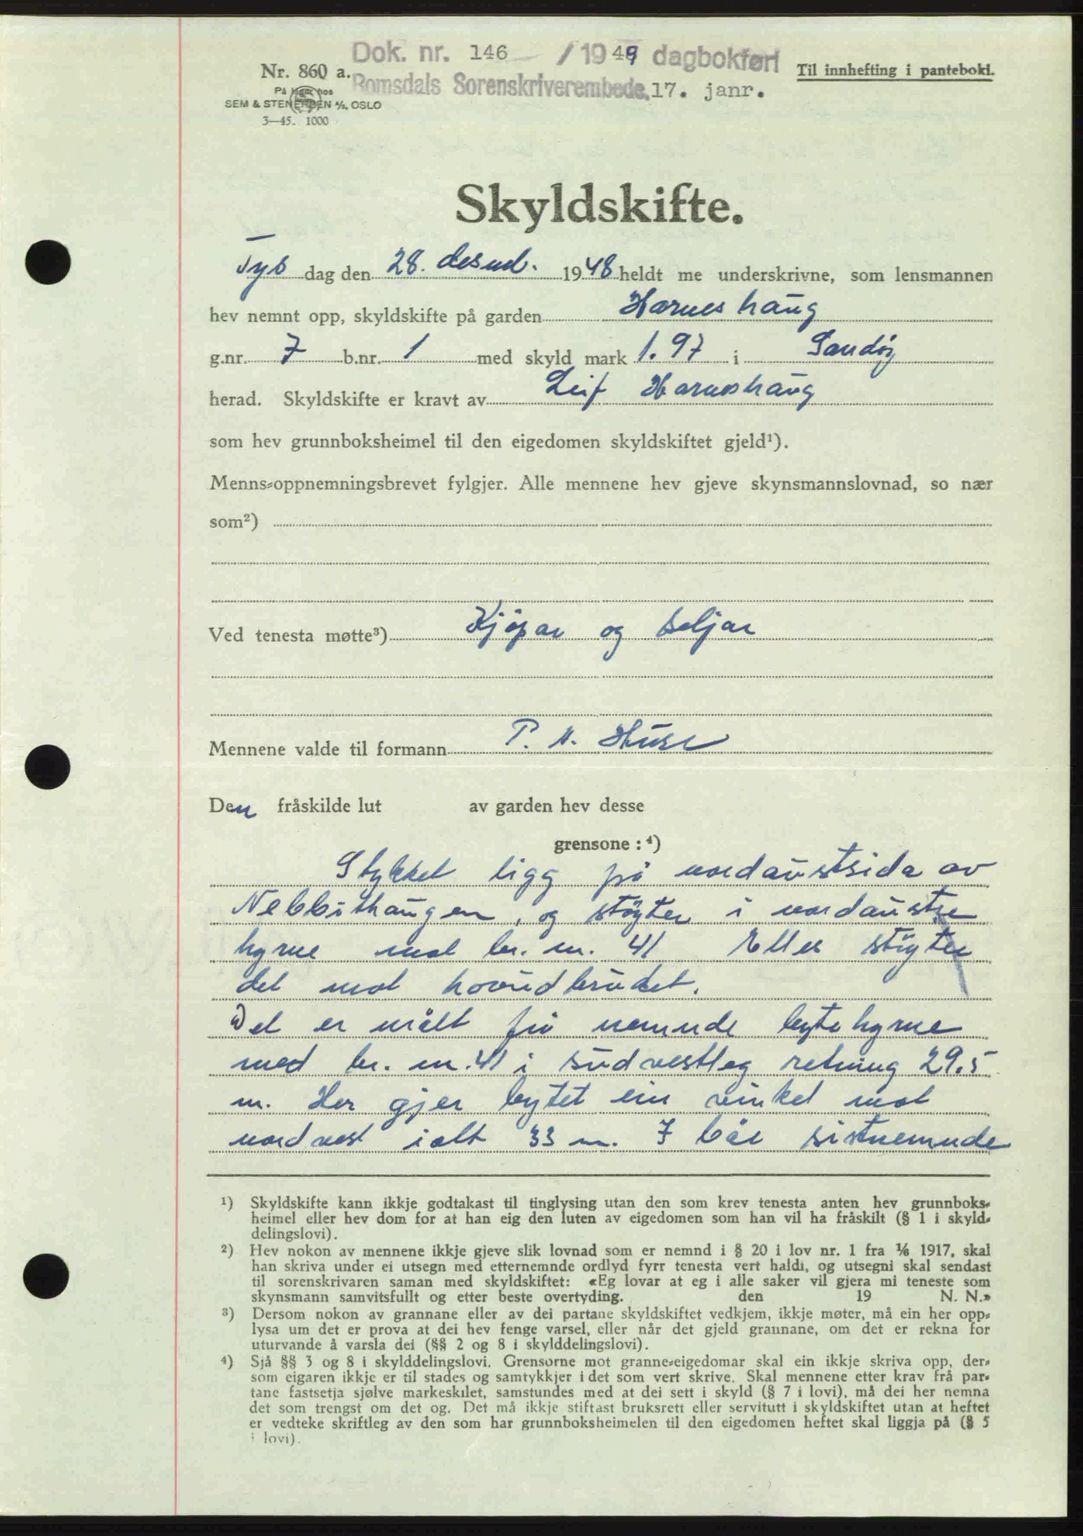 Dok. nr. 146 / 1949 dagbokført
Nr. 860 a. Romsdals Sorenskriverembede, 17. janr.
Til innhefting i pantebokl.
På lager hos
SEM & STENERSEN A/S. OSLO
3—45. 1000
Skyldskifte.
Tys dag den 28. desmb. 1948 heldt me underskrivne, som lensmannen
hev nemnt opp, skyldskifte på garden Harneshaug
g.nr. 7 b.nr. 1 med skyld mark 1.97 i Sandøy
herad. Skyldskifte er kravt av Leif Harneshaug
som hev grunnboksheimel til den eigedomen skyldskiftet gjeld¹).
Menns-oppnemningsbrevet fylgjer. Alle mennene hev gjeve skynsmannslovnad, so nær
som²)
Ved tenesta møtte³) Kjøpar og seljar
Mennene valde til formann P. N. Huse
Den fråskilde lut av garden hev desse
grensone : ⁴)
Stykket ligg på nordaustsida av
Nebbithaugen, og støyter i nordaustre
hyrne mot br. nr. 41 Elles støyter
det mot hovudbruket.
Det er målt frå nemnde bytehyrne
med br. nr. 41 i sudvestleg retning 29.5
m. Her gjer bytet ein vinkel mot
nordvest ialt 33 m. I båe sistnemnde
¹) Skyldskifte kann ikkje godtakast til tinglysing utan den som krev tenesta anten hev grunnboks-
heimel eller hev dom for at han eig den luten av eigedomen som han vil ha fråskilt (§ 1 i skyld-
delingslovi).
²) Hev nokon av mennene ikkje gjeve slik lovnad som er nemnd i § 20 i lov nr. 1 fra ⅙ 1917, skal
han skriva under ei utsegn med etternemnde ordlyd fyrr tenesta vert haldi, og utsegni skal sendast
til sorenskrivaren saman med skyldskiftet: «Eg lovar at eg i alle saker vil gjera mi teneste som
skynsmann samvitsfullt og etter beste overtyding. den 19 N. N.»
³) Dersom nokon av grannane eller av dei partane skyldskiftet vedkjem, ikkje møter, må ein her opp-
lysa um det er prova at dei hev fenge varsel, eller når det gjeld grannane, om det er rekna for
uturvande å varsla dei (§§ 2 og 8 i skylddelingslovi).
⁴) Sjå §§ 3 og 8 i skylddelingslovi. Grensorne mot granne-eigedomar skal ein ikkje skriva opp, der-
som eigaren ikkje er til stades og samtykkjer i det som vert skrive. Skal mennene etter krav frå par-
tane fastsetja sjølve markeskilet, samstundes med at dei sett i skyld (§ 7 i lovi), må dei her nemna
det som trengst om det og. Det må ikkje stiftast bruksrett eller servitutt i skyldskiftet utan at heftet
er vedteke skriftleg av den som har grunnboksheimelen til den eigedomen heftet skal liggja på (§ 5
i lovi).